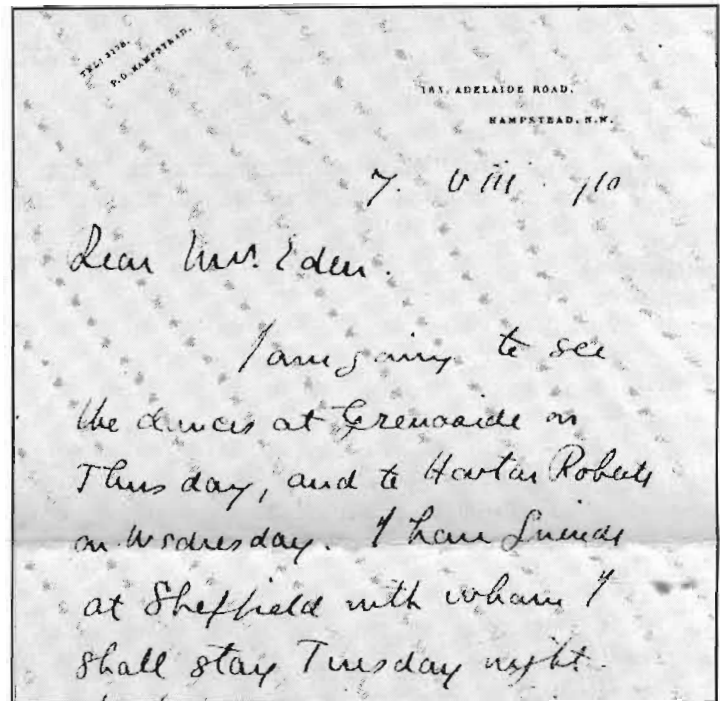 TEL: 3178,
P.O. HAMPSTEAD.
183, ADELAIDE ROAD,
HAMPSTEAD, N.W.
7. Viii. /10
Dear Mrs. Eden.
I am going to see
the dances at Grenoside on
Thursday, and to Roberts
on Wednesday. I have friends
at Sheffield with whom I
shall stay Tuesday night.